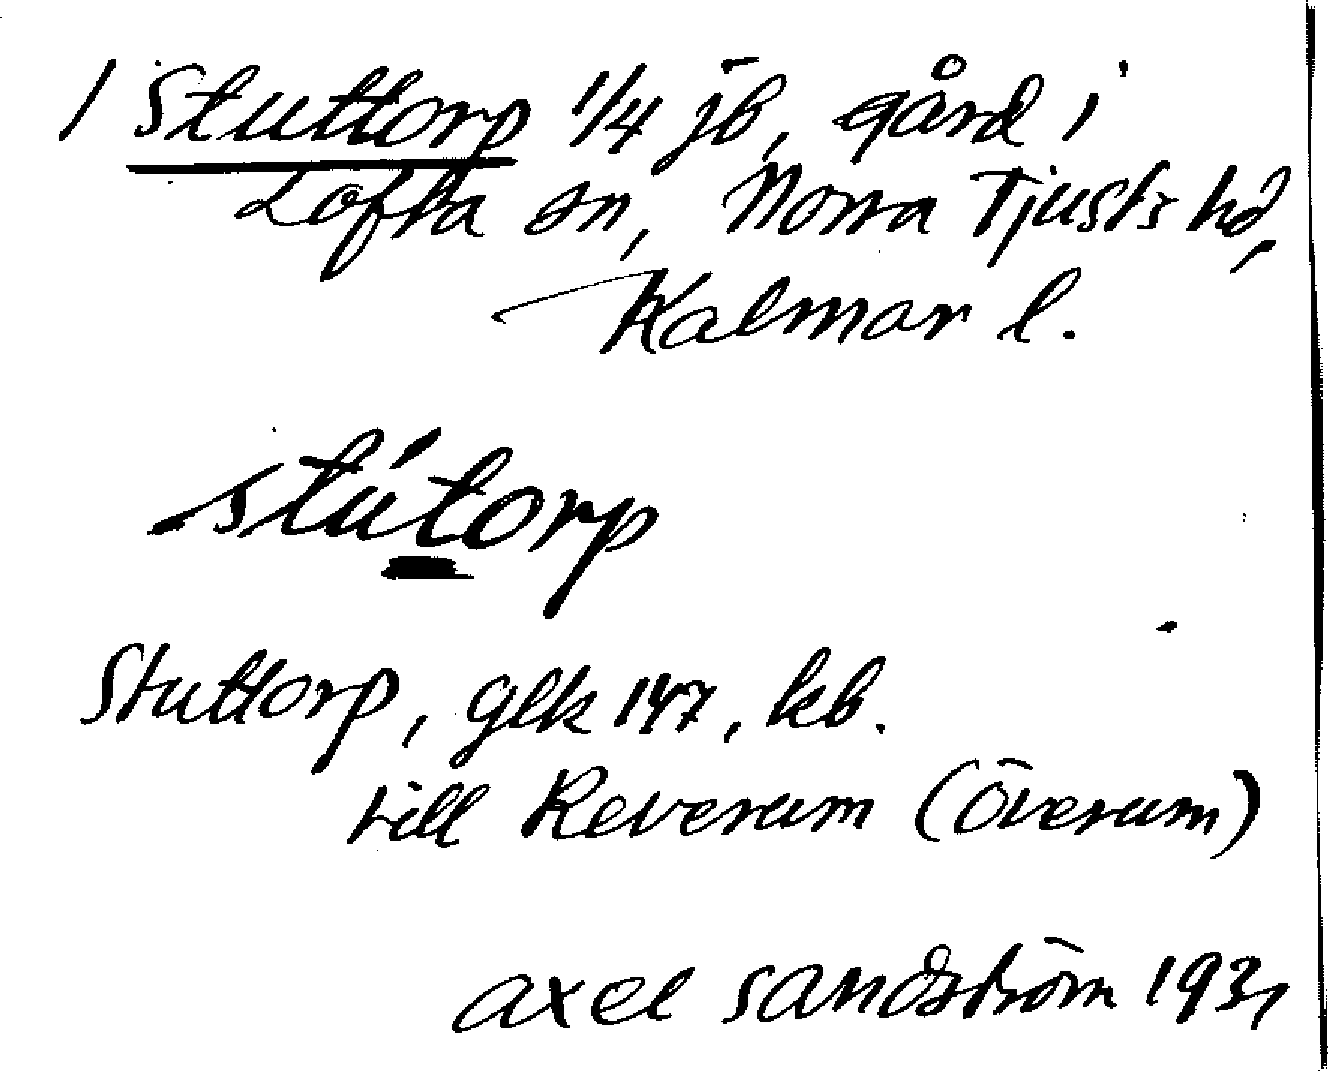 1 Stuttorp 1/4 jb, gård i
Lofta sn, Norra Tjusts hd,
Kalmar l.
stútorp
Stuttorp, glk 147, kb.
till Reverum (Överum)
axel sandström